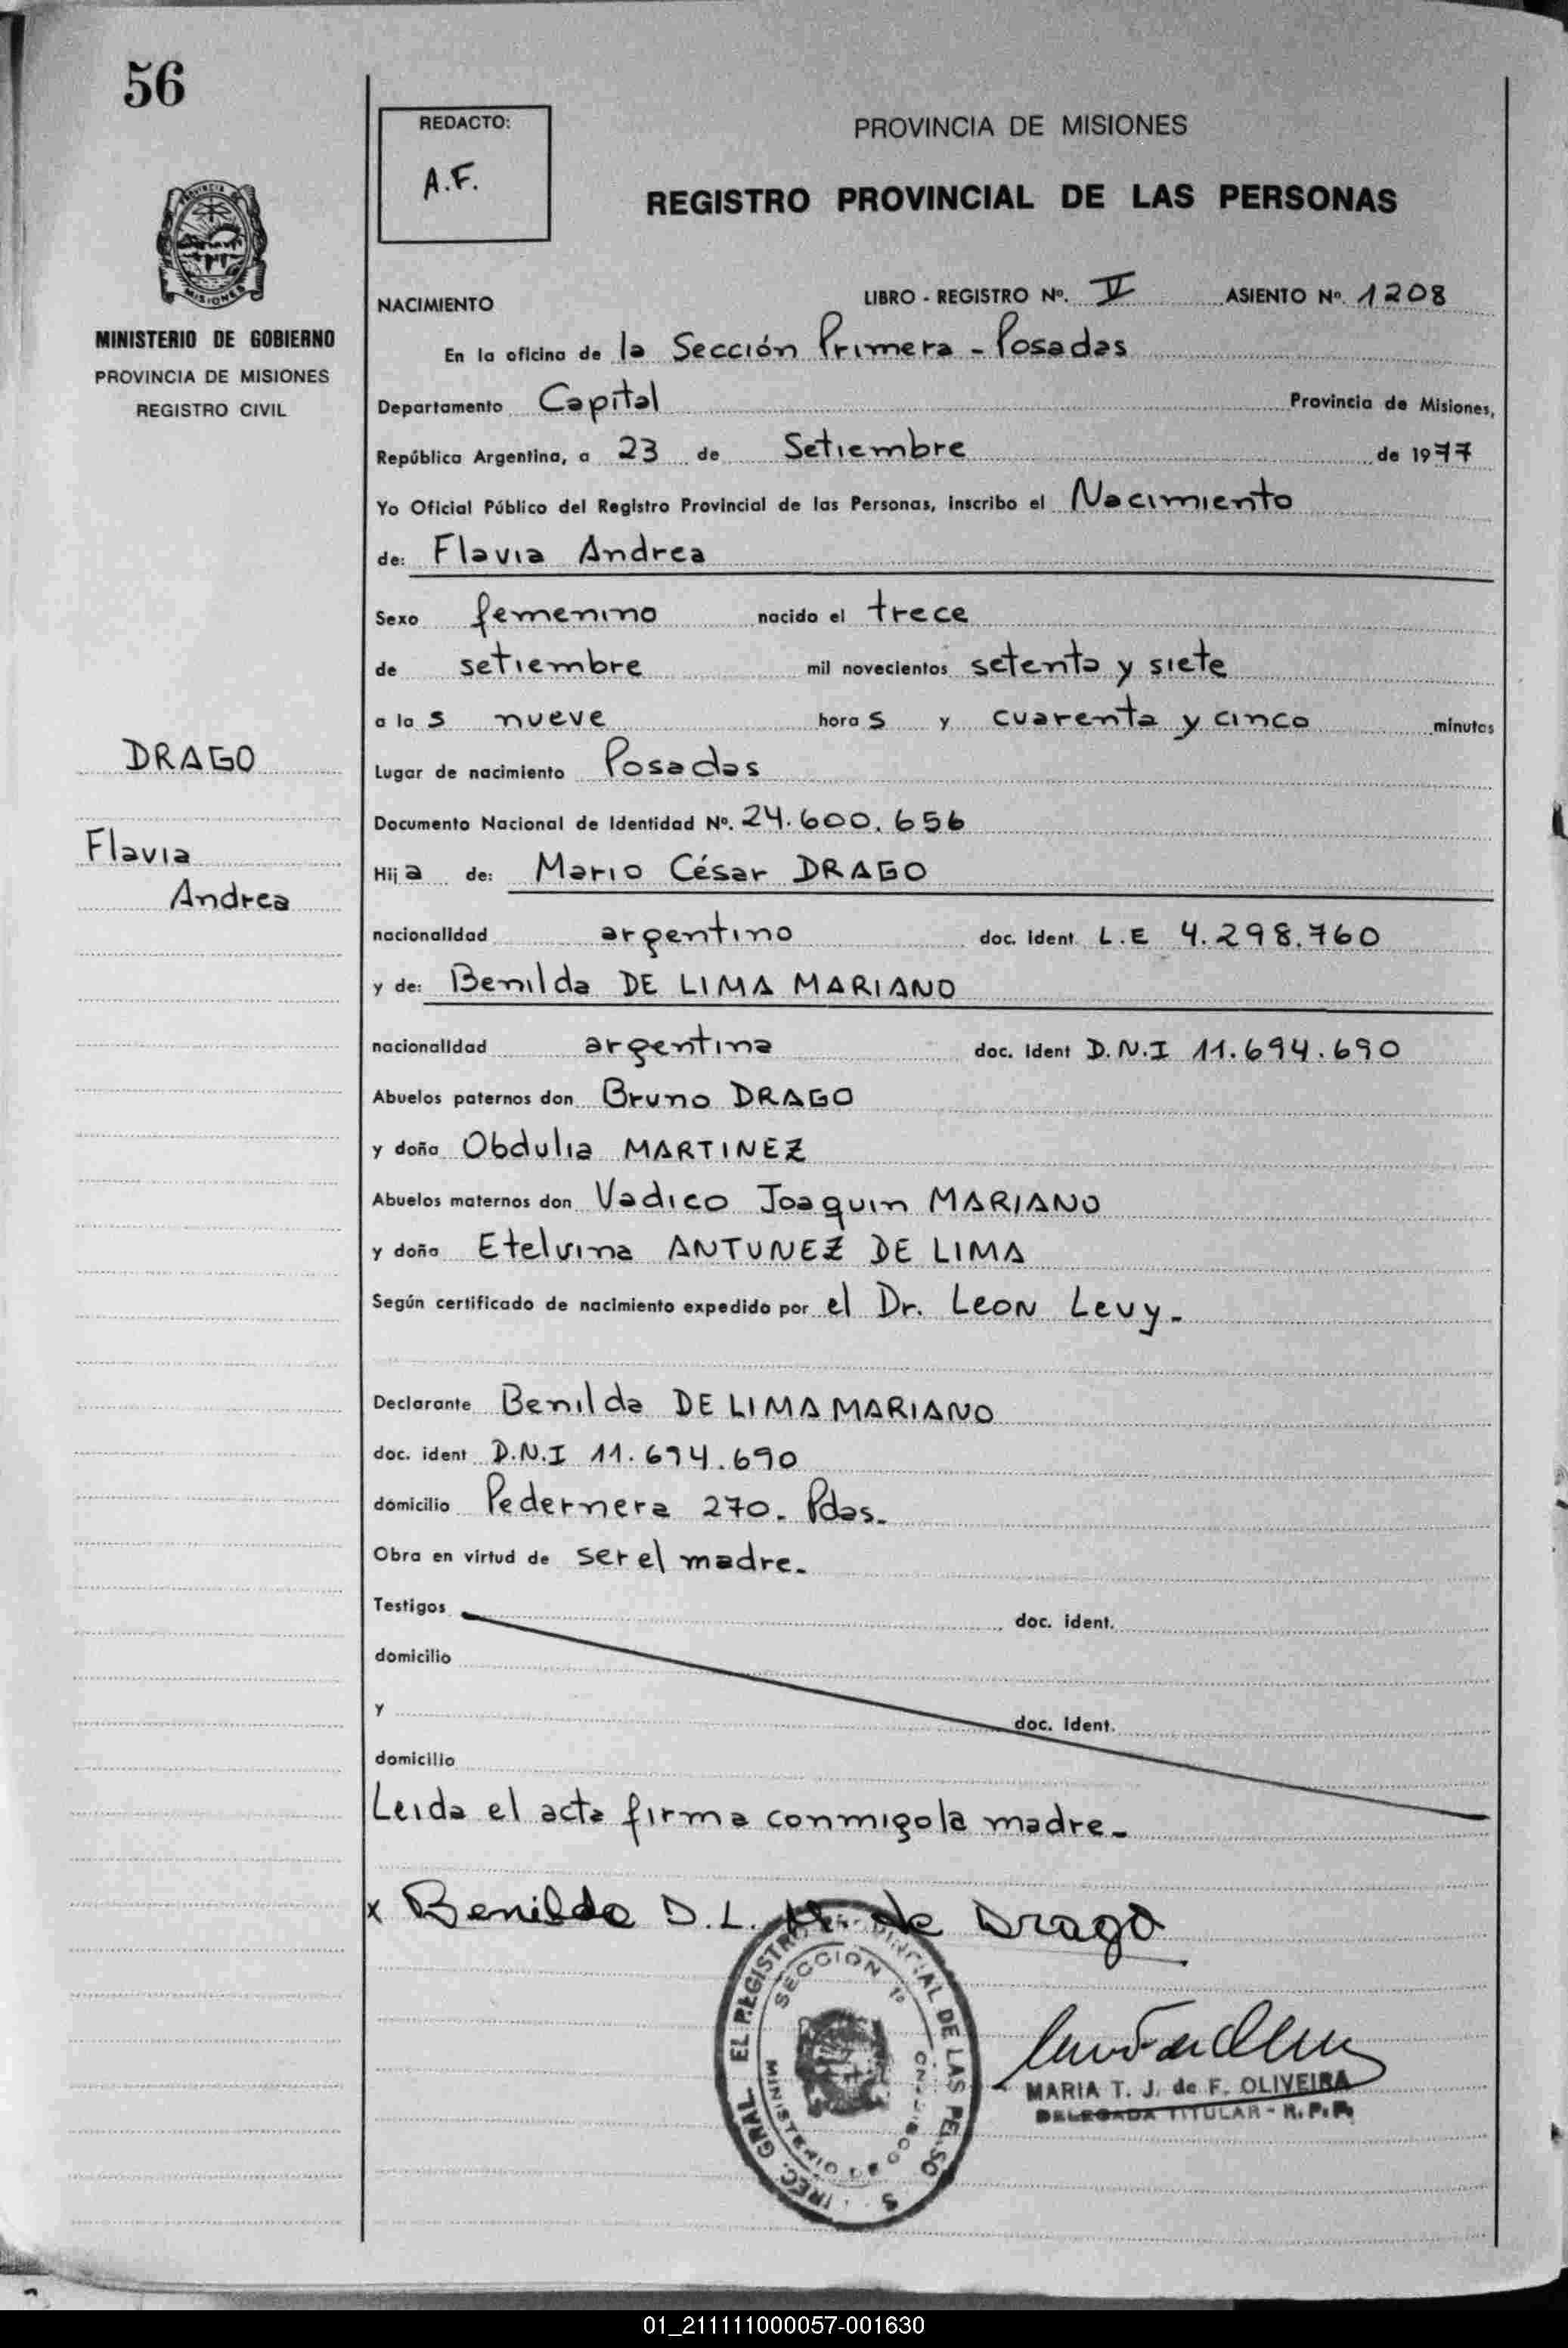 56
REDACTO:
A.F.
PROVINCIA DE MISIONES
REGISTRO PROVINCIAL DE LAS PERSONAS
MISIONES
MINISTERIO DE GOBIERNO
PROVINCIA DE MISIONES
REGISTRO CIVIL
NACIMIENTO
LIBRO - REGISTRO Nº. V ASIENTO Nº. 1208
En la oficina de la Sección Primera - Posadas
Departamento Capital Provincia de Misiones,
República Argentina, a 23 de Setiembre de 1977
Yo Oficial Público del Registro Provincial de las Personas, inscribo el Nacimiento
de: Flavia Andrea
Sexo femenino nacido el trece
de setiembre mil novecientos setenta y siete
a las nueve horas y cuarenta y cinco minutos
DRAGO
Flavia
Andrea
Lugar de nacimiento Posadas
Documento Nacional de Identidad Nº. 24.600.656
Hija de: Mario César DRAGO
nacionalidad argentino doc. ident. L.E 4.298.760
y de: Benilda DE LIMA MARIANO
nacionalidad argentina doc. ident D.N.I 11.694.690
Abuelos paternos don Bruno DRAGO
y doña Obdulia MARTINEZ
Abuelos maternos don Vadico Joaquin MARIANO
y doña Etelvina ANTUNEZ DE LIMA
Según certificado de nacimiento expedido por el Dr. Leon Levy.-
Declarante Benilda DE LIMA MARIANO
doc. ident D.N.I 11.694.690
domicilio Pedernera 270.- Pdas.-
Obra en virtud de ser el madre.-
Testigos doc. ident.
domicilio
y doc. ident.
domicilio
Leida el acta firma conmigo la madre.-
x Benilda D.L. M. de Drago
SECCION 1º
MARIA T. J. de F. OLIVEIRA
DELEGADA TITULAR - R.P.P.
01_211111000057-001630